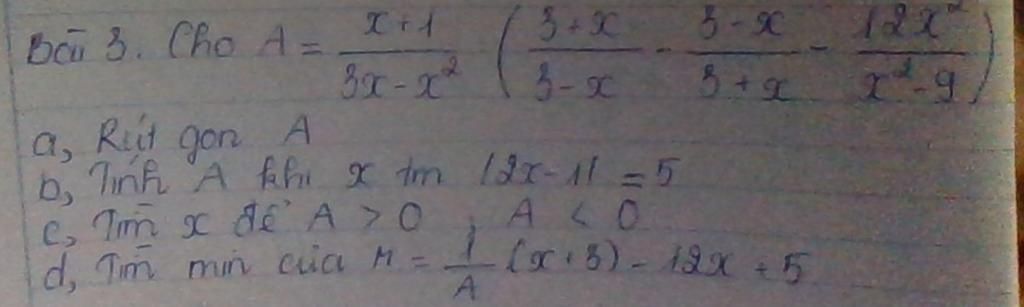 Bài 3. Cho A = \frac{x+1}{3x-x^2} ( \frac{3+x}{3-x} - \frac{3-x}{3+x} - \frac{12x^2}{x^2-9} )
a, Rút gọn A
b, Tính A khi x tm |2x-1| = 5
c, Tìm x để A > 0 , A < 0
d, Tìm min của M = \frac{1}{A} (x+3) - 12x + 5